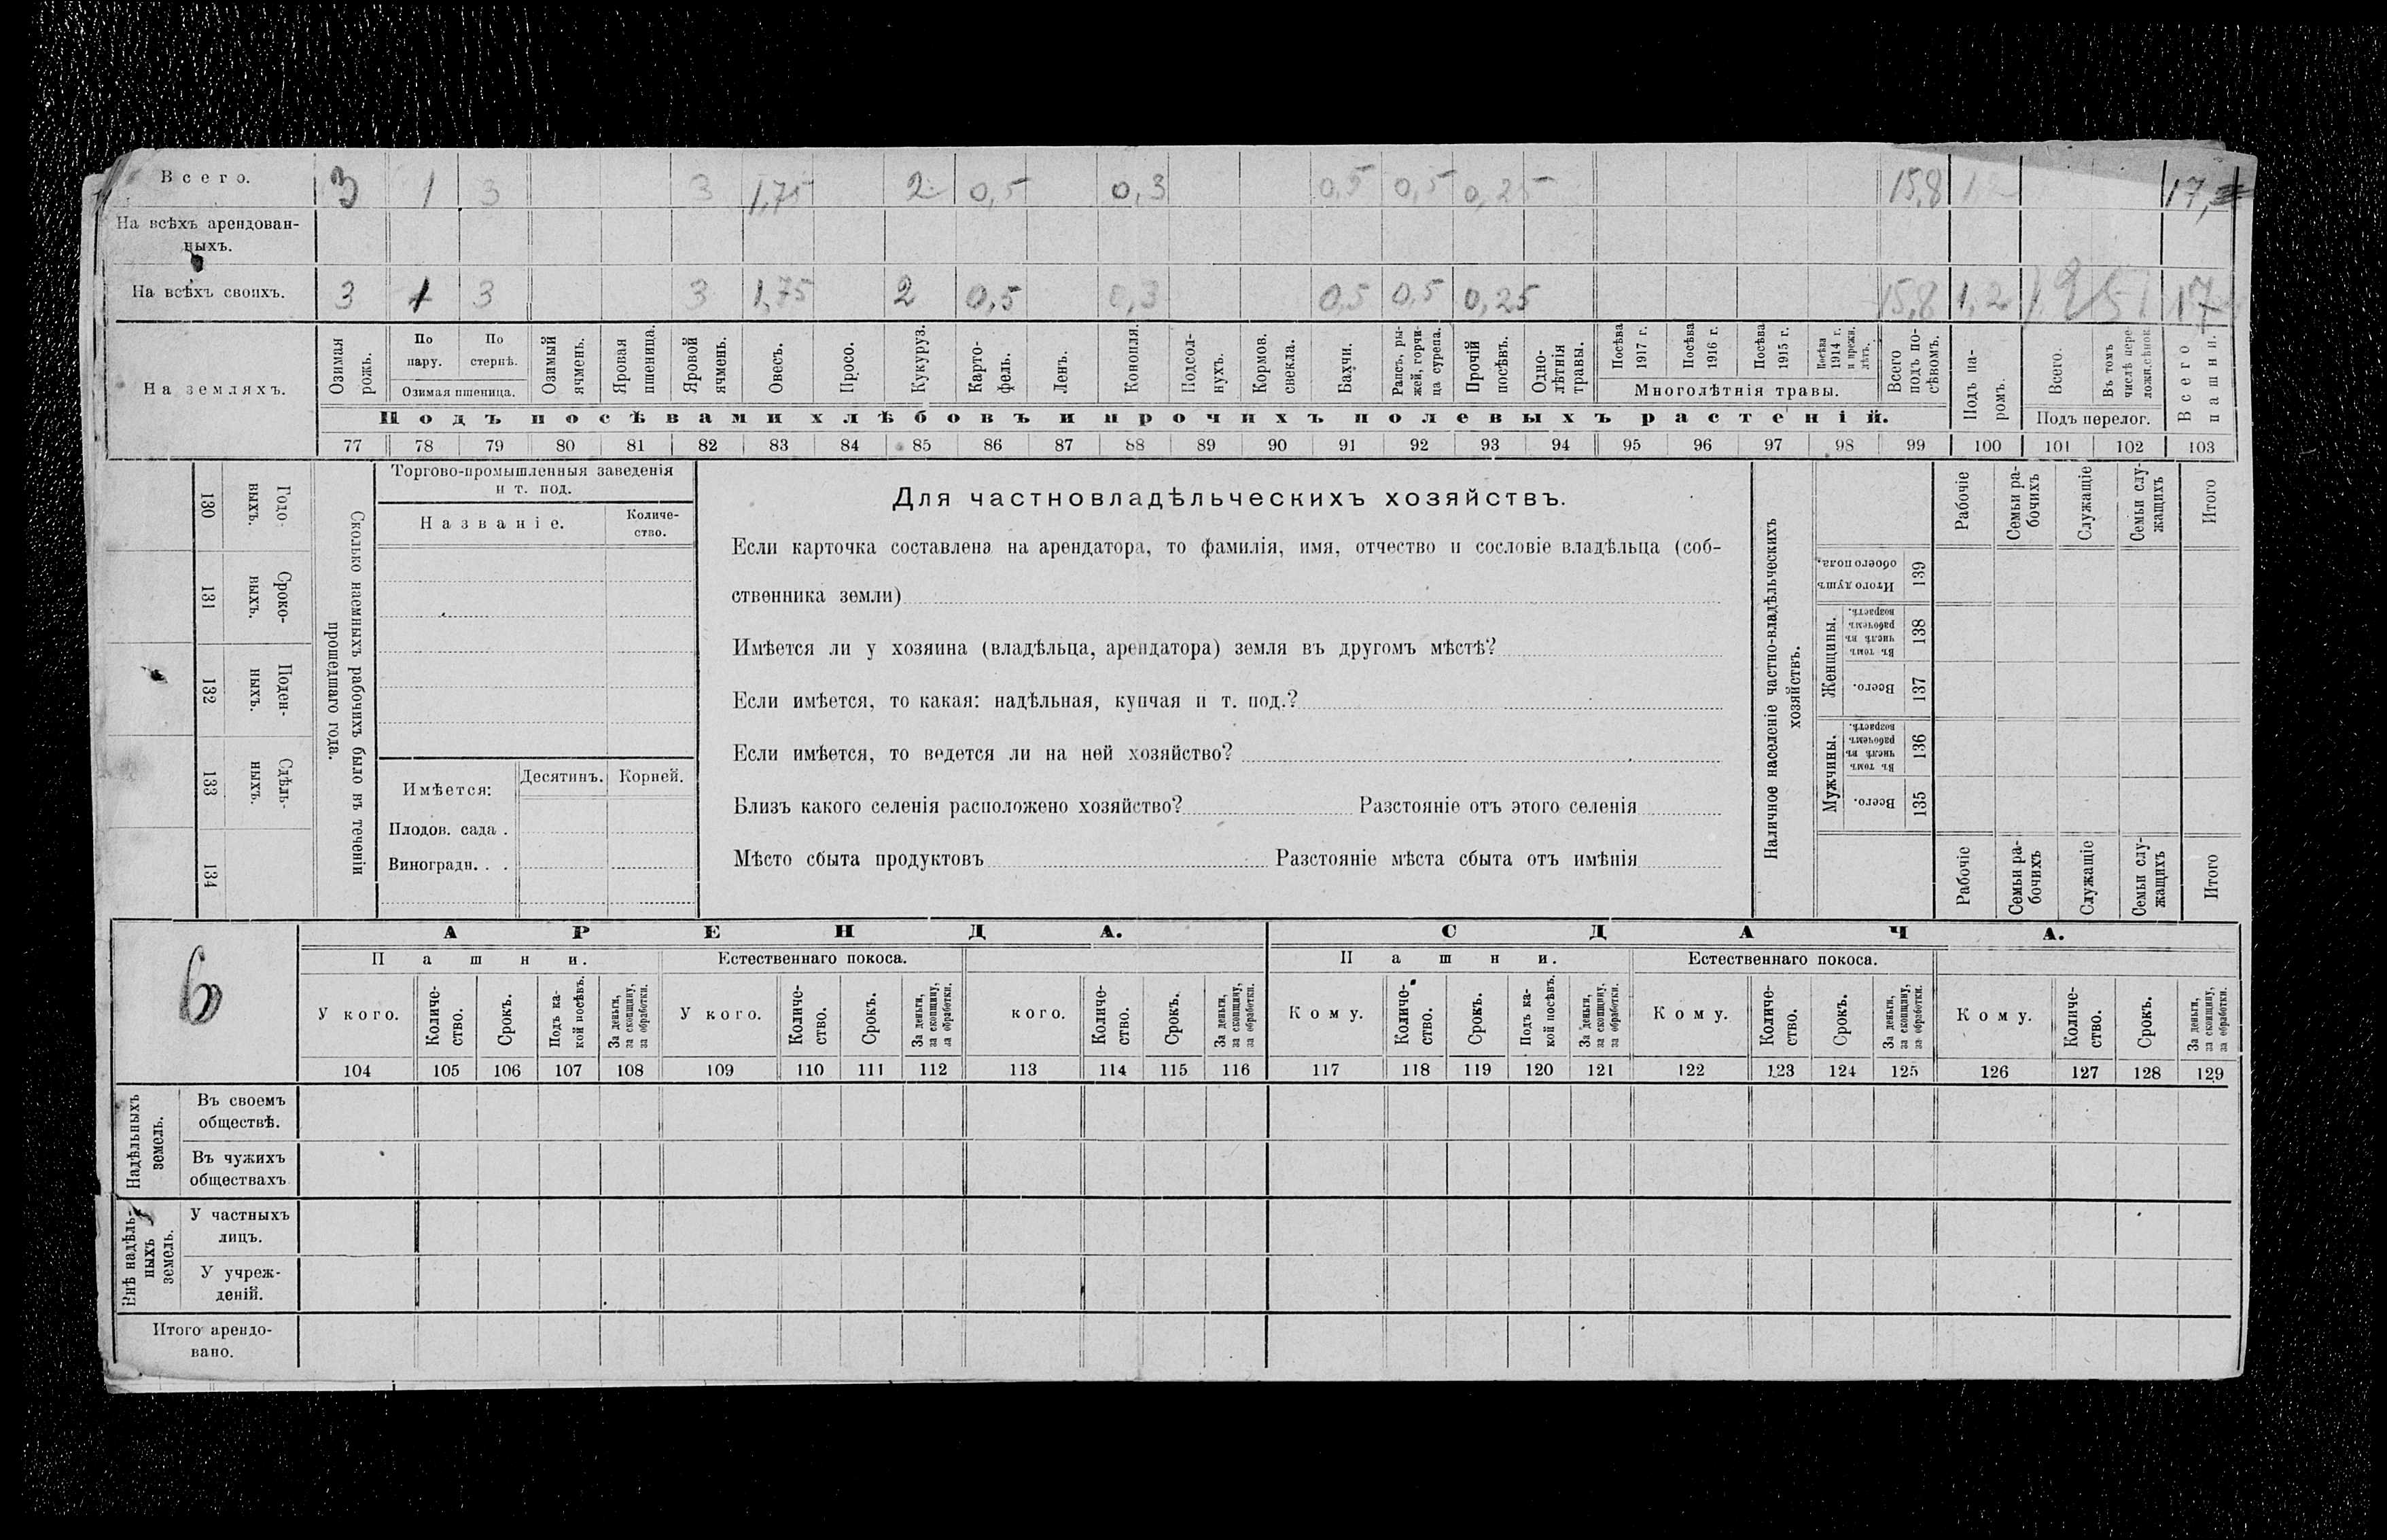 Всего. 3 1 3 3 1,75 2 0,5 0,3 0,5 0,5 0,25 15,8 1,2 17,
На всѣхъ арендован-
ныхъ.
На всѣхъ своихъ. 3 1 3 3 1,75 2 0,5 0,3 0,5 0,5 0,25 15,8 1,2 17
На земляхъ.
Озимая рожь.
По пару.
По стернѣ.
Озимая пшеница.
Озимый ячмень.
Яровая пшеница.
Яровой ячмень.
Овесъ.
Просо.
Кукуруз.
Карто-
фель.
Ленъ.
Конопля.
Подсол-
нухъ.
Кормов. свекла.
Бахчи.
Рапсъ, ры-
жей, горчи-
ца сурепа.
Прочій посѣвъ.
Одно-
лѣтнія травы.
Посѣва 1917 г.
Посѣва 1916 г.
Посѣва 1915 г.
Посѣва 1914 г. и прежн. лѣтъ.
Многолѣтнія травы.
Всего подъ по-
сѣвомъ.
Подъ па-
ромъ.
Всего.
Въ томъ числѣ пере-
ложн. сѣнок.
Подъ перелог.
Всего пашни.
Подъ посѣвами хлѣбовъ и прочихъ полевыхъ растеній.
77 78 79 80 81 82 83 84 85 86 87 88 89 90 91 92 93 94 95 96 97 98 99 100 101 102 103
130 Годо-
выхъ.
131 Сроко-
выхъ.
132 Поден-
ныхъ.
133 Сдѣль-
ныхъ.
134
Сколько наемныхъ рабочихъ было въ теченіи
прошедшаго года.
Торгово-промышленныя заведенія
и т. под.
Названіе.
Количе-
ство.
Имѣется: Десятинъ. Корней.
Плодов. сада .
Виноградн. . .
Для частновладѣльческихъ хозяйствъ.
Если карточка составлена на арендатора, то фамилія, имя, отчество и сословіе владѣльца (соб-
ственника земли)
Имѣется ли у хозяина (владѣльца, арендатора) земля въ другомъ мѣстѣ?
Если имѣется, то какая: надѣльная, купчая и т. под.?
Если имѣется, то ведется ли на ней хозяйство?
Близъ какого селенія расположено хозяйство? Разстояніе отъ этого селенія
Мѣсто сбыта продуктовъ Разстояніе мѣста сбыта отъ имѣнія
Наличное населеніе частно-владѣльческихъ
хозяйствъ.
Рабочіе
Семьи ра-
бочихъ
Служащіе
Семьи слу-
жащихъ
Итого
Итого душъ обоего пола. 139
Женщины.
Въ томъ числѣ въ рабочемъ возрастѣ. 138
Всего. 137
Мужчины.
Въ томъ числѣ въ рабочемъ возрастѣ. 136
Всего. 135
Рабочіе
Семьи ра-
бочихъ
Служащіе
Семьи слу-
жащихъ
Итого
6
АРЕНДА. СДАЧА.
Пашни. Естественнаго покоса. Пашни. Естественнаго покоса.
У кого.
Количе-
ство.
Срокъ.
Подъ ка-
кой посѣвъ.
За деньги,
за скопщину,
за обработки.
У кого.
Количе-
ство.
Срокъ.
За деньги,
за скопщину,
за обработки.
кого.
Количе-
ство.
Срокъ.
За деньги,
за скопщину,
за обработки.
Кому.
Количе-
ство.
Срокъ.
Подъ ка-
кой посѣвъ.
За деньги,
за скопщину,
за обработки.
Кому.
Количе-
ство.
Срокъ.
За деньги,
за скопщину,
за обработки.
Кому.
Количе-
ство.
Срокъ.
За деньги,
за скопщину,
за обработки.
104 105 106 107 108 109 110 111 112 113 114 115 116 117 118 119 120 121 122 123 124 125 126 127 128 129
Надѣльныхъ
земель.
Въ своемъ
обществѣ.
Въ чужихъ
обществахъ
Внѣ надѣль-
ныхъ
земель.
У частныхъ
лицъ.
У учреж-
деній.
Итого арендо-
вано.